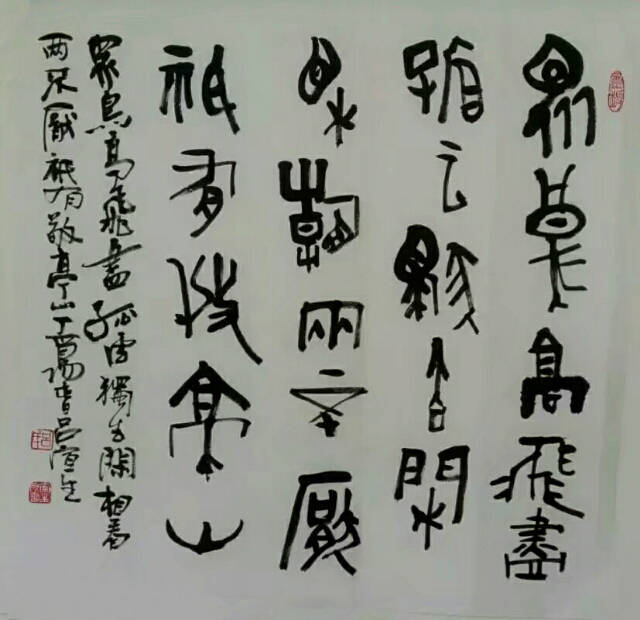 眾鳥高飛盡
孤云獨去閑
相看兩不厭
祇有敬亭山
眾鳥高飛盡孤雲獨去閑相看
两不厭祇有敬亭山丁酉